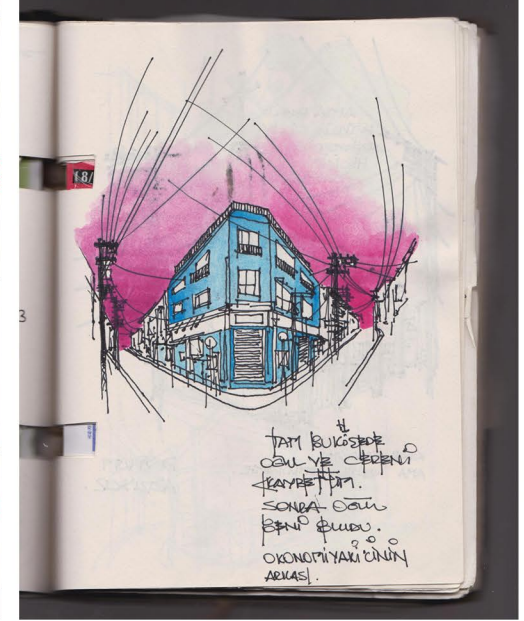 18/
3
TAM BU KÖŞEDE
OĞUL VE CEREN'İ
KAYBETTİM.
SONRA OĞUL
BENİ BULDU.
OKONOMİYAKİ'CİNİN
ARKASI.